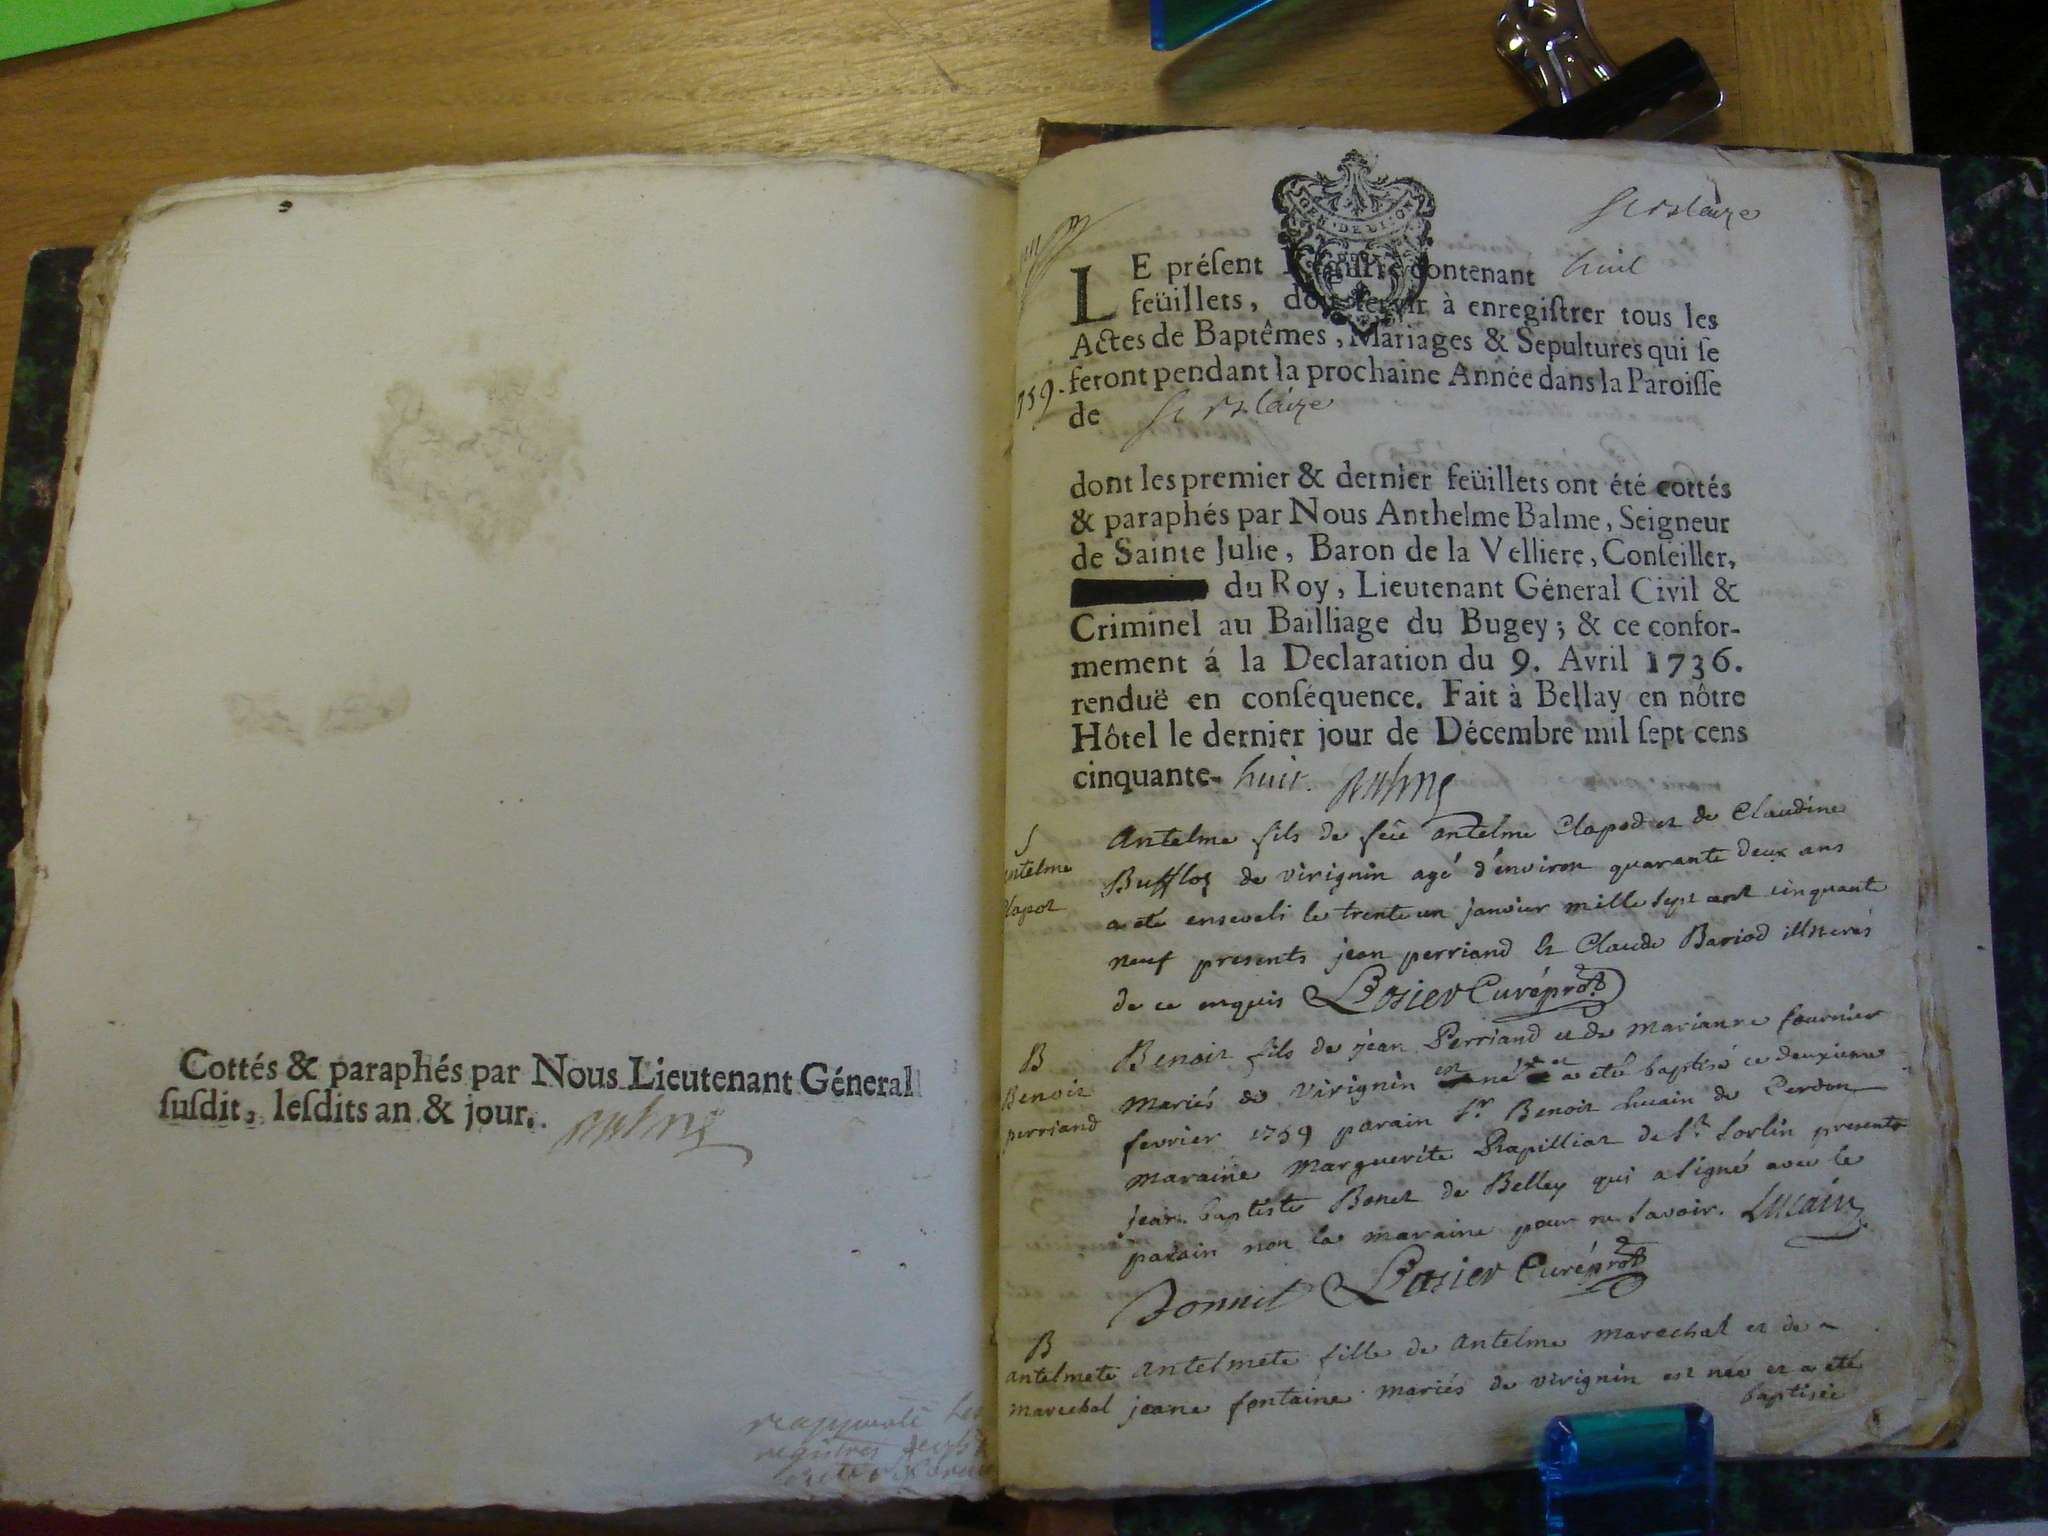 Cottés & paraphés par Nous Lieutenant Géneral
susdit, lesdits an & jour.
registres
huit
LE présent Registre contenant
feüillets, doit servir à enregistrer tous les
Actes de Baptêmes, Mariages & Sepultures qui se
feront pendant la prochaine Année dans la Paroisse
de
dont les premier & dernier feüillets ont été cottés
& paraphés par Nous Anthelme Balme, Seigneur
de Sainte Julie, Baron de la Velliere, Conseiller,
du Roy, Lieutenant Géneral Civil &
Criminel au Bailliage du Bugey; & ce confor-
mement á la Declaration du 9. Avril 1736.
renduë en conséquence. Fait à Bellay en nôtre
Hôtel le dernier jour de Décembre mil sept cens
cinquante- huit.
S
antelme
Clapot
Antelme fils de feüe antelme Clapod et de Claudine
Buffloz de virignin agé d'environ quarante deux ans
a eté enseveli le trente un janvier mille sept cent cinquante
neuf presents jean perriand et Claude Bariod illiterés
de ce enquis Losier Curé
B
Benoit
perriand
Benoit fils de jean Perriand et de marianne fournier
mariés de virignin est né et a eté baptisé ce deuxieme
fevrier 1759 parain Sr Benoit Lucain de Cerdon
maraine marguerite Rapilliat de St Sorlin presents
jean baptiste Bonet de Belley qui a signé avec le
parain non la maraine pour ne savoir. Lucain
Bonnet Losier Curé
B
antelmete
marechal
antelmete fille de antelme marechal et de
jeane fontaine mariés de virignin est née et a eté
baptisée